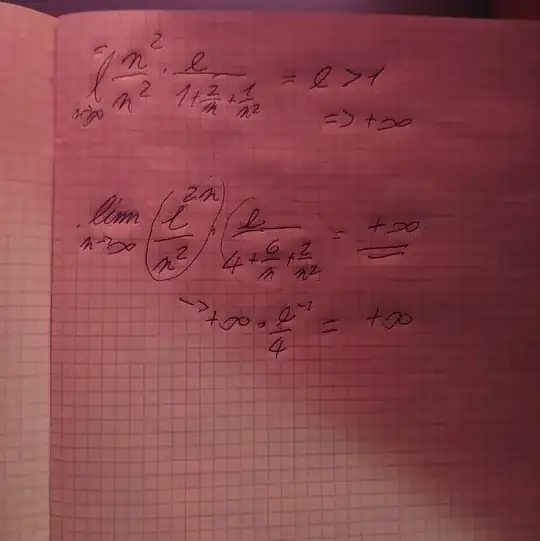 lim n→∞ n²/n² · e/(1+2/n+1/n²) = e > 1
=> +∞
lim n→∞ (e^2n/n²) · (e/(4+6/n+2/n²)) = +∞
→ +∞ · e⁻¹/4 = +∞